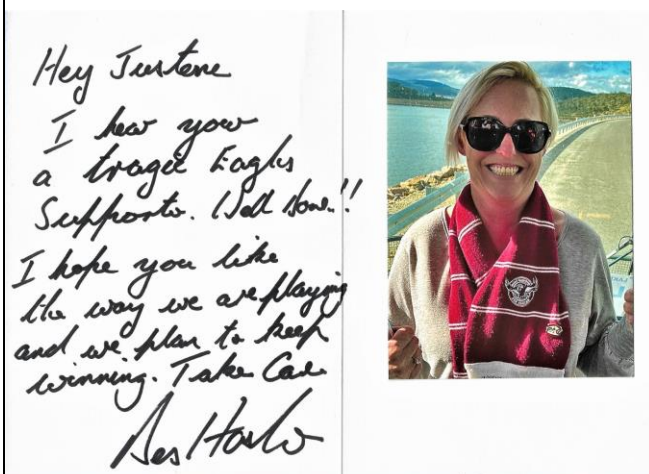 Hey Justene
I hear your
a tragic Eagles
Supporter. Well done!!
I hope you like
the way we are playing
and we plan to keep
winning. Take Care
Des Hasler